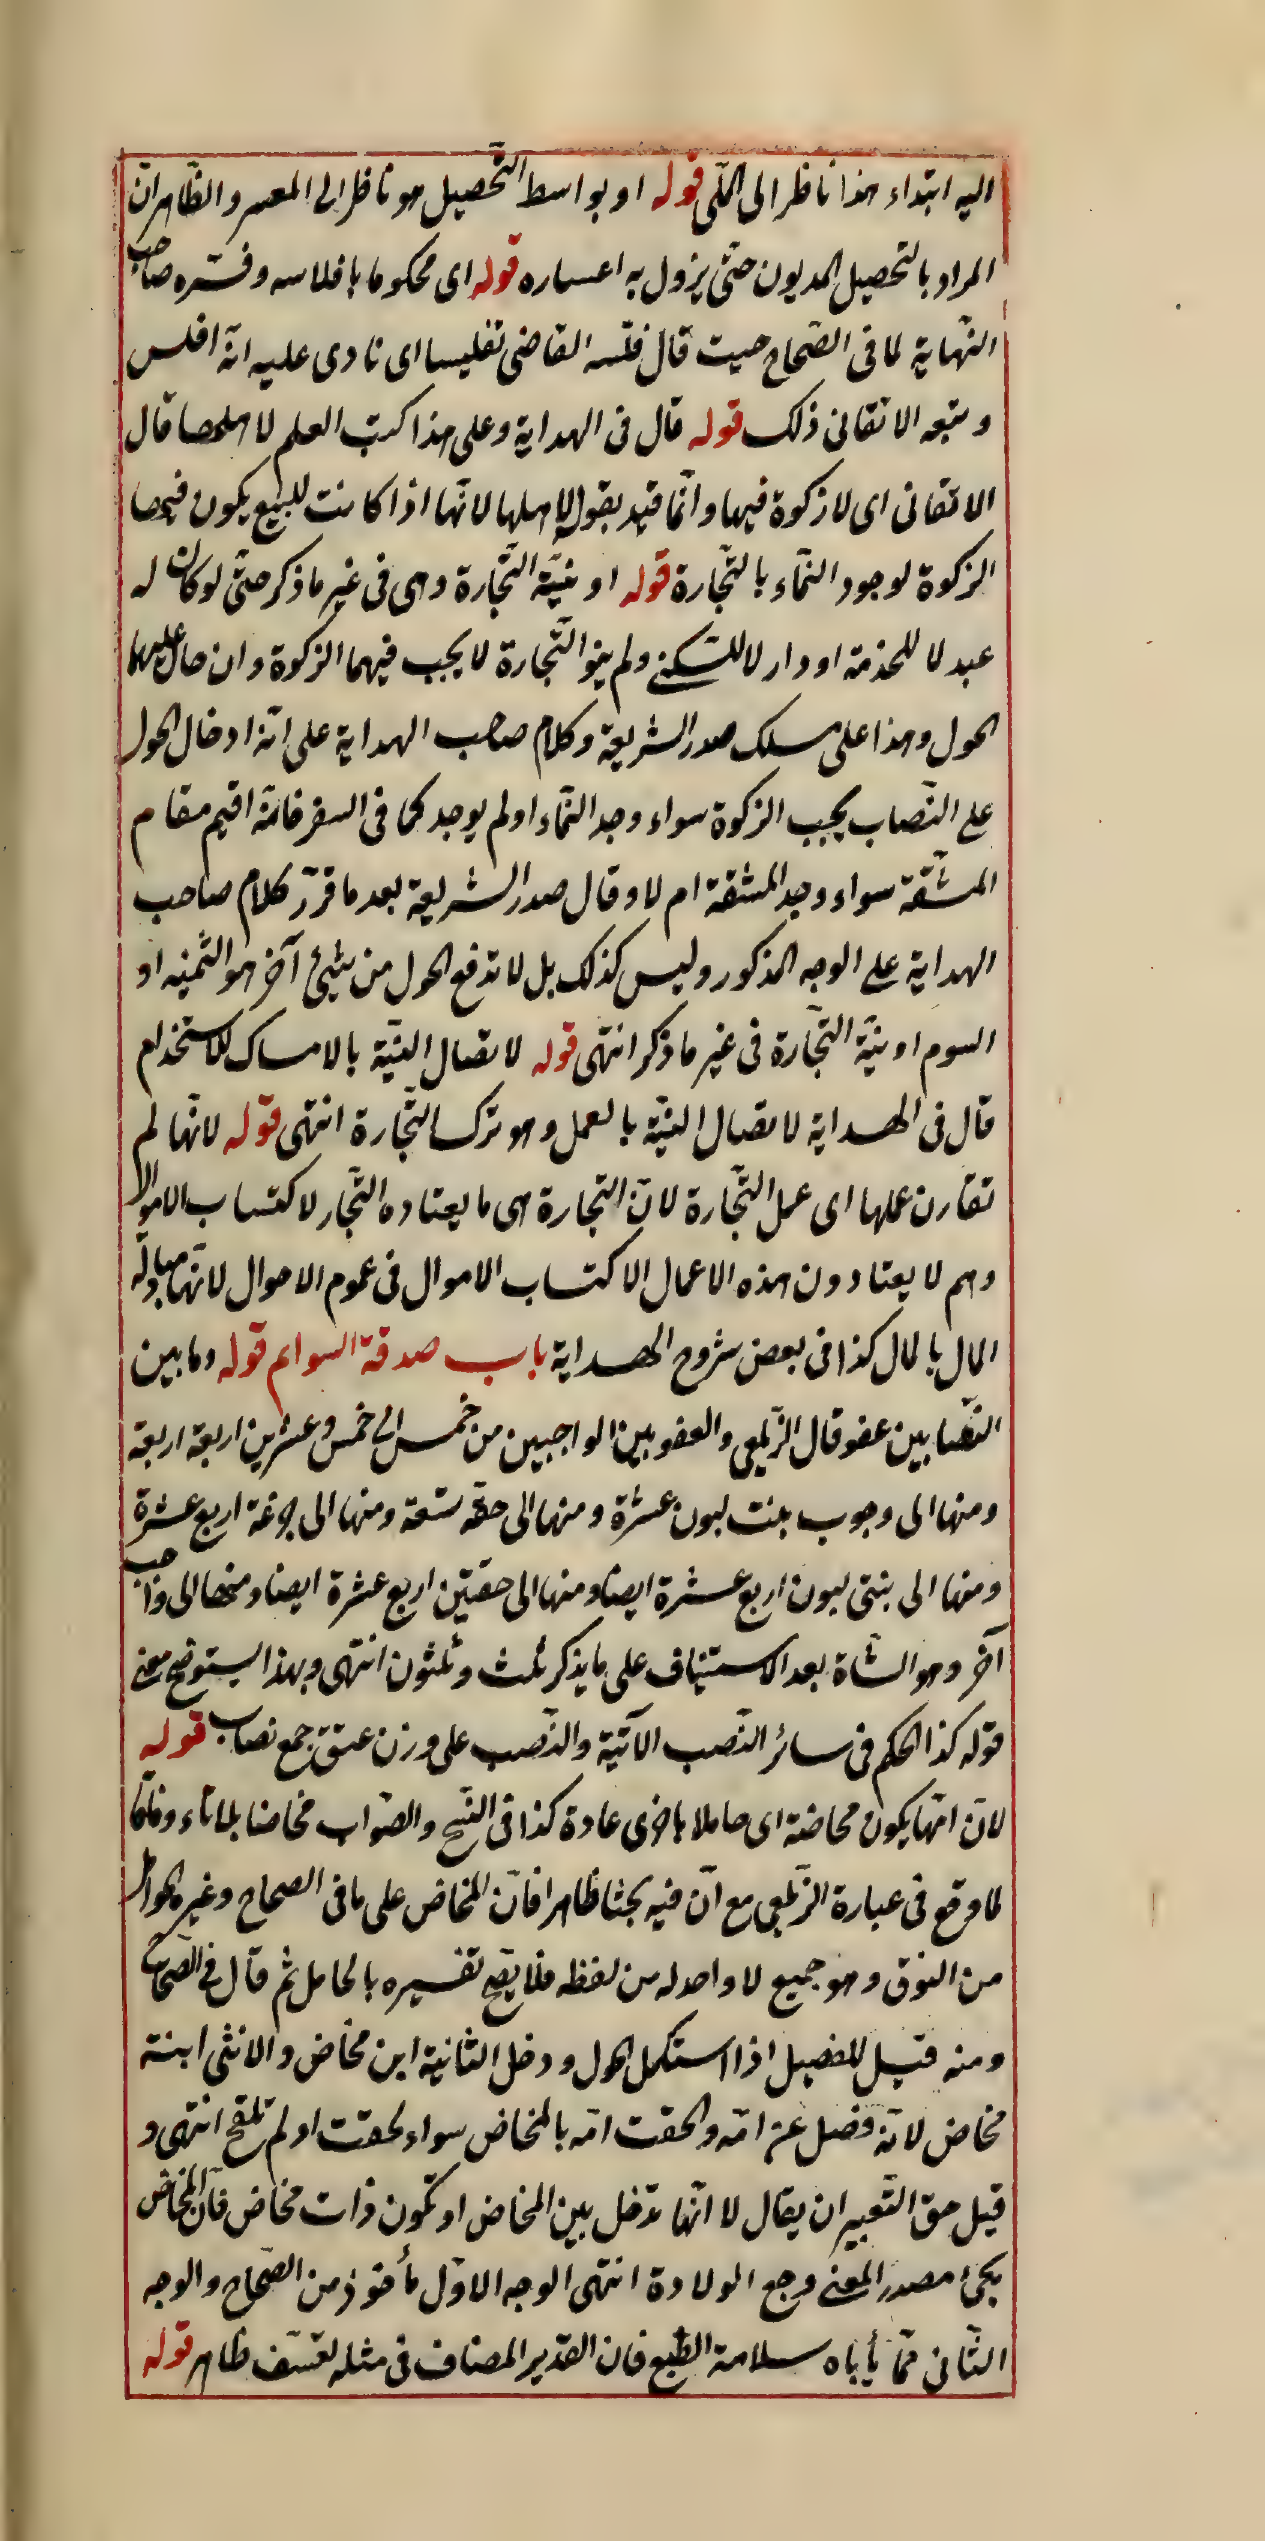 اليه ابتداء هذا ناظر الى الملى قوله او بواسط التّحصيل هو ناظر الى المعسر والظّاهر انّ
المراد بالتحصيل المديون حتّى يزول به اعساره قوله اى محكوما بافلاسه وفسّره صاحب
النّهاية لما فى الصّحاح حيث قال فلّسه القاضى تفليسا اى نادى عليه انّه افلس
وتبعه الاتقانى ذلك قوله قال فى الهداية وعلى هذا كتب العلم لاهلها قال
الاتقانى اى لا زكوة فيها وانّما قيد بقوله لاهلها لانّها اذا كانت للبيع يكون فيها
الزكوة لوجود النّماء بالتّجارة قوله او بنيّة التّجارة وهى فى غير ما ذكر حتّى لو كان له
عبد لا للخدمة او دار لا للسّكنى ولم ينو التّجارة لا يجب فيهما الزكوة وان حال عليهما
الحول وهذا على مسلك صدر الشريعة وكلام صاحب الهداية على انّه اذ حال الحول
على النّصاب يجب الزكوة سواء وجد النّماء او لم يوجد كما فى السفر فانّه اقيم مقام
المشقّة سواء وجد المشقة ام لا وقال صدر الشريعة بعد ما قرّر كلام صاحب
الهداية على الوجه المذكور وليس كذلك بل لا تدفع الحول من شيئ آخر هو الثّمنيه او
السوم او نيّة التّجارة فى غير ما ذكر انتهى قوله لاتصال النيّة بالامساك للاستخدام
قال فى الهداية لاتصال النيّة بالعمل وهو ترك التّجارة انتهى قوله لانّها لم
تقارن عملها اى عمل التّجارة لانّ التجارة هى ما يعتاده التّجار لاكتساب الاموال
وهم لا يعتادون هذه الاعمال الاكتساب الاموال فى عموم الاحوال لانّها مبادلة
المال بالمال كذا فى بعض شروح الهداية باب صدقة السوائم قوله وما بين
النّصابين عفو قال الزيلعى والعفو بين الواجبين من خمس الى خمس وعشرين اربعة اربعة
ومنها الى وجوب بنت لبون عشرة ومنها الى حقّه تسعة ومنها الى جذعة اربع عشرة
ومنها الى بنتى لبون اربع عشرة ايضا ومنها الى حقتين اربع عشرة ايضا ومنها الى واجب
آخر وهو الشّاة بعد الاستيناف على ما يذكر ثلث وثلثون انتهى وبهذا يستوضح معنى
قوله كذا الحكم فى سائر النّصب الآتية والنّصب على وزن عنق جمع نصاب قوله
لانّ امّها يكون مخاضة اى حاملا باخرى عادة كذا فى النّسخ والصّواب مخاضا بلا تاء وفاقا
لما وقع فى عبارة الزّيلعى مع انّ فيه بحثا ظاهرا فانّ المخاض على ما فى الصحاح وغيره الحوامل
من النوق وهو جميع لا واحد له من لفظه فلا يصحّ تفسيره بالحامل ثم قال فى الصّحاح
ومنه قيل للفصيل اذا استكمل الحول ودخل الثانية ابن مخاض والانثى ابنة
مخاض لانّه فصل عن امّه والحقت امّه بالمخاض سواء لحقت او لم تلقح انتهى و
قيل حق التّعبير ان يقال لا انّها تدخل بين المخاض او تكون ذات مخاض فانّ المخاض
يجئ مصدر المعنى وجع الولادة انتهى الوجه الاوّل مأخوذ من الصّحاح والوجه
الثّانى ممّا يأباه سلامة الطّبع فان القدير المضاف فى مثله لعسّف ظاهر قوله